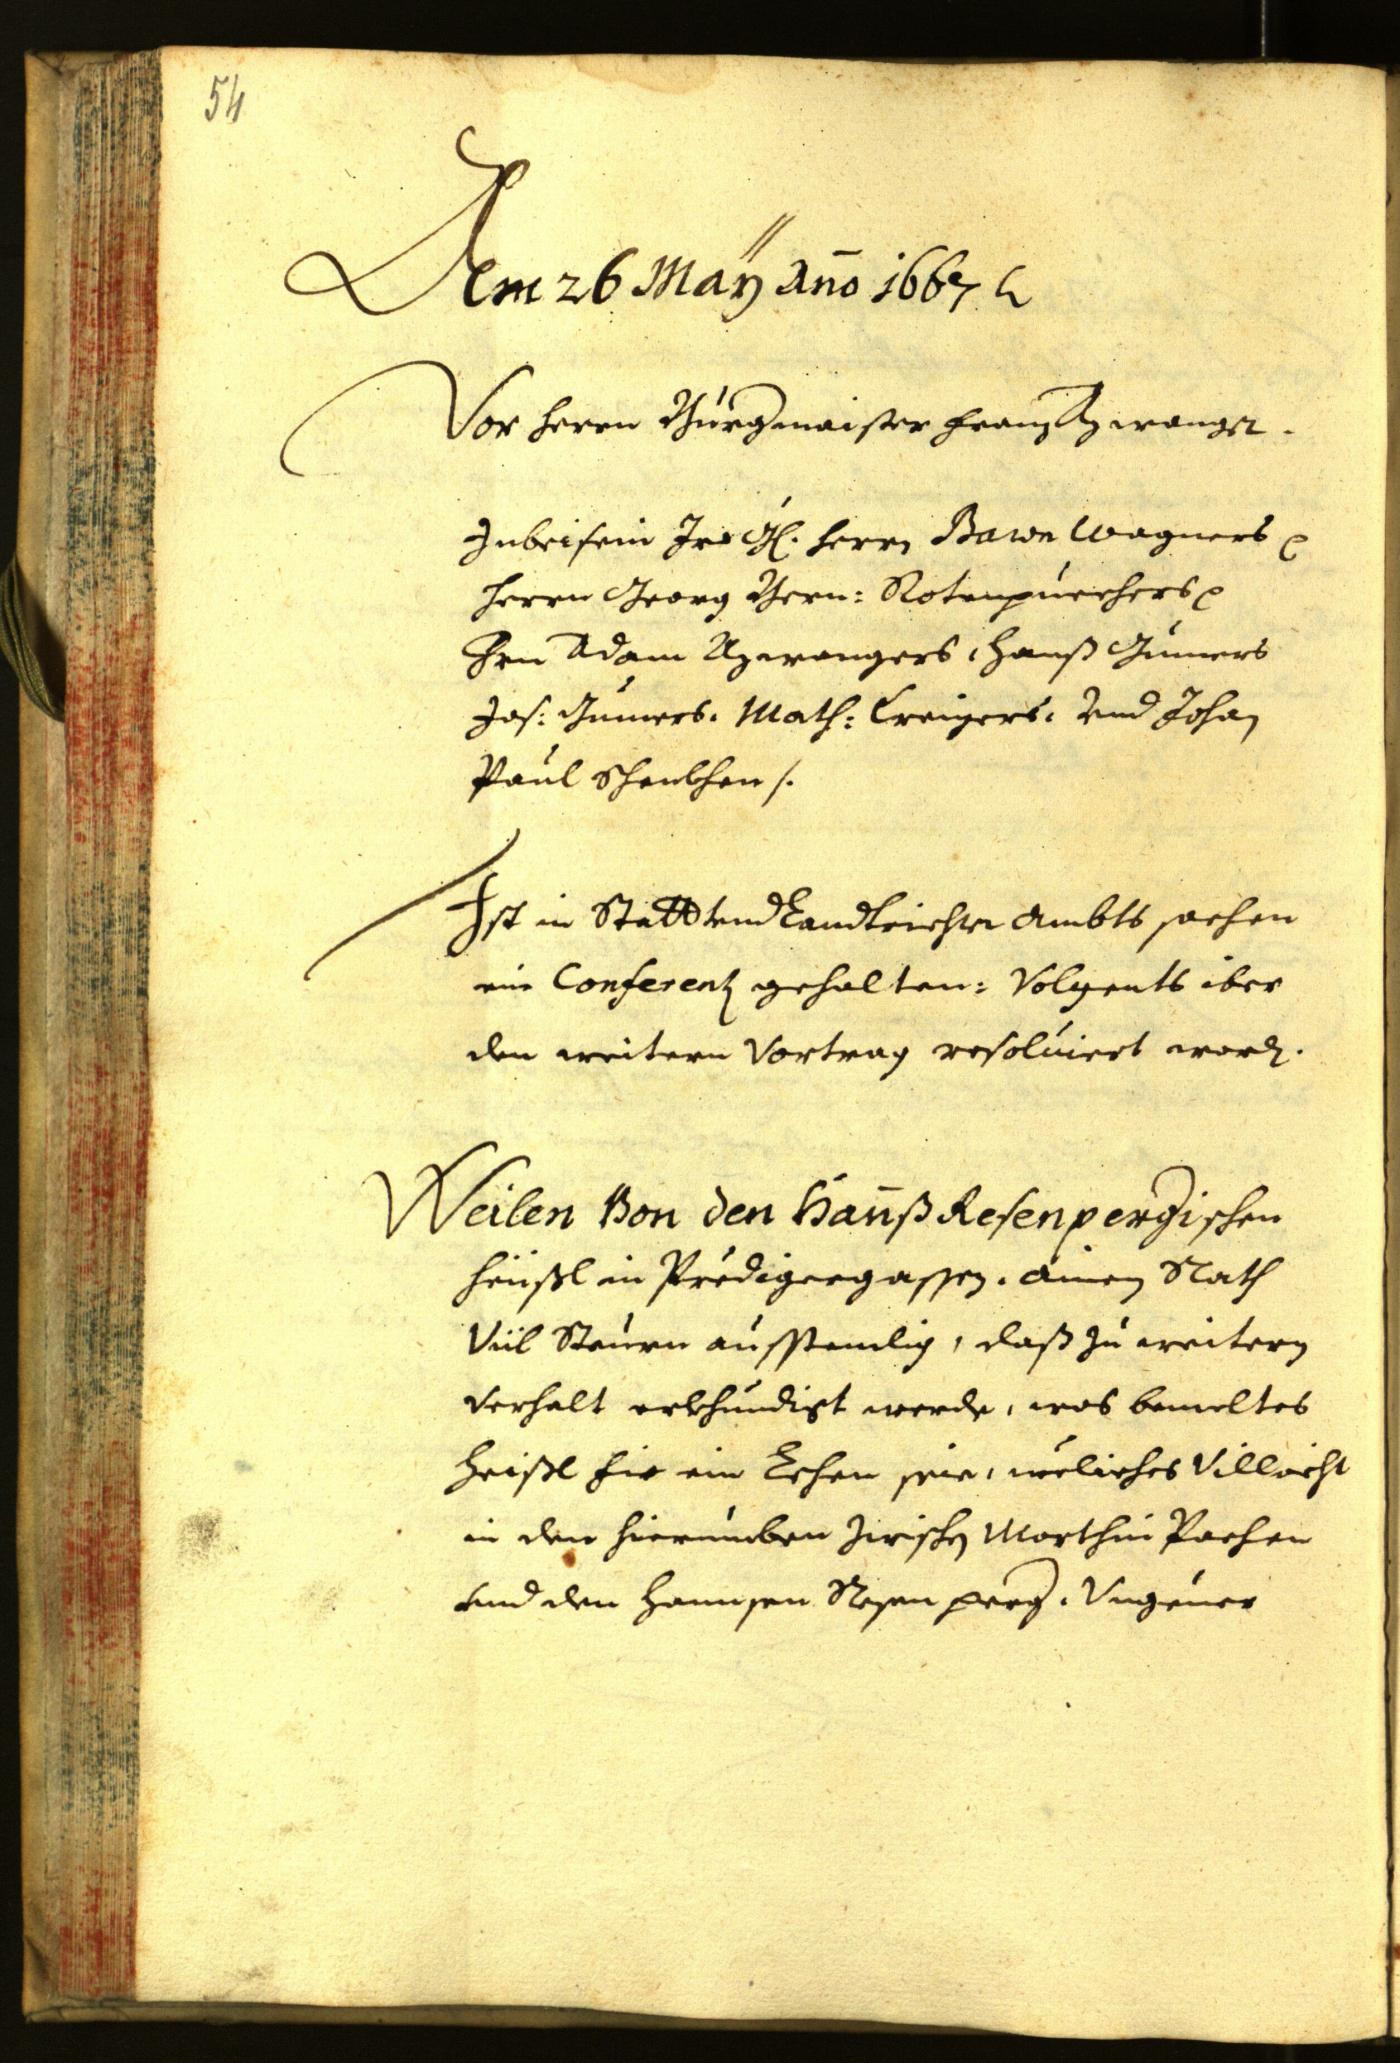 54
Am 26 Maÿ Año 1667
Vor herrn Burgmaister Franz Azwanger.
In beisein Ir Gl. herrn Baron Wagners
herrn Georg Bern: Rotenpuechers
Hrn Adam Azwangers, Hanß Gumers
Jos: Gumers. Math: Kreizers. Vnd Johan
Paul Schenkhen /.
Ist in Statt vnd Landtrichter Ambts sachen
ein Conferenz gehalten: Volgents iber
den weitern Vortrag resoluiert word.
Weilen Von den Hanß Resenpergischen
heißl in Predigergassen. ainen Rath
Viil Steurn ausstendig, daß zu weitern
verhalt erkhundigt werde, was bemeltes
heißl fir ein Lehen seie, weliches Villeicht
in den hierumben zwischen Marthin Pachen
vnd den Hannsen Resenperg.